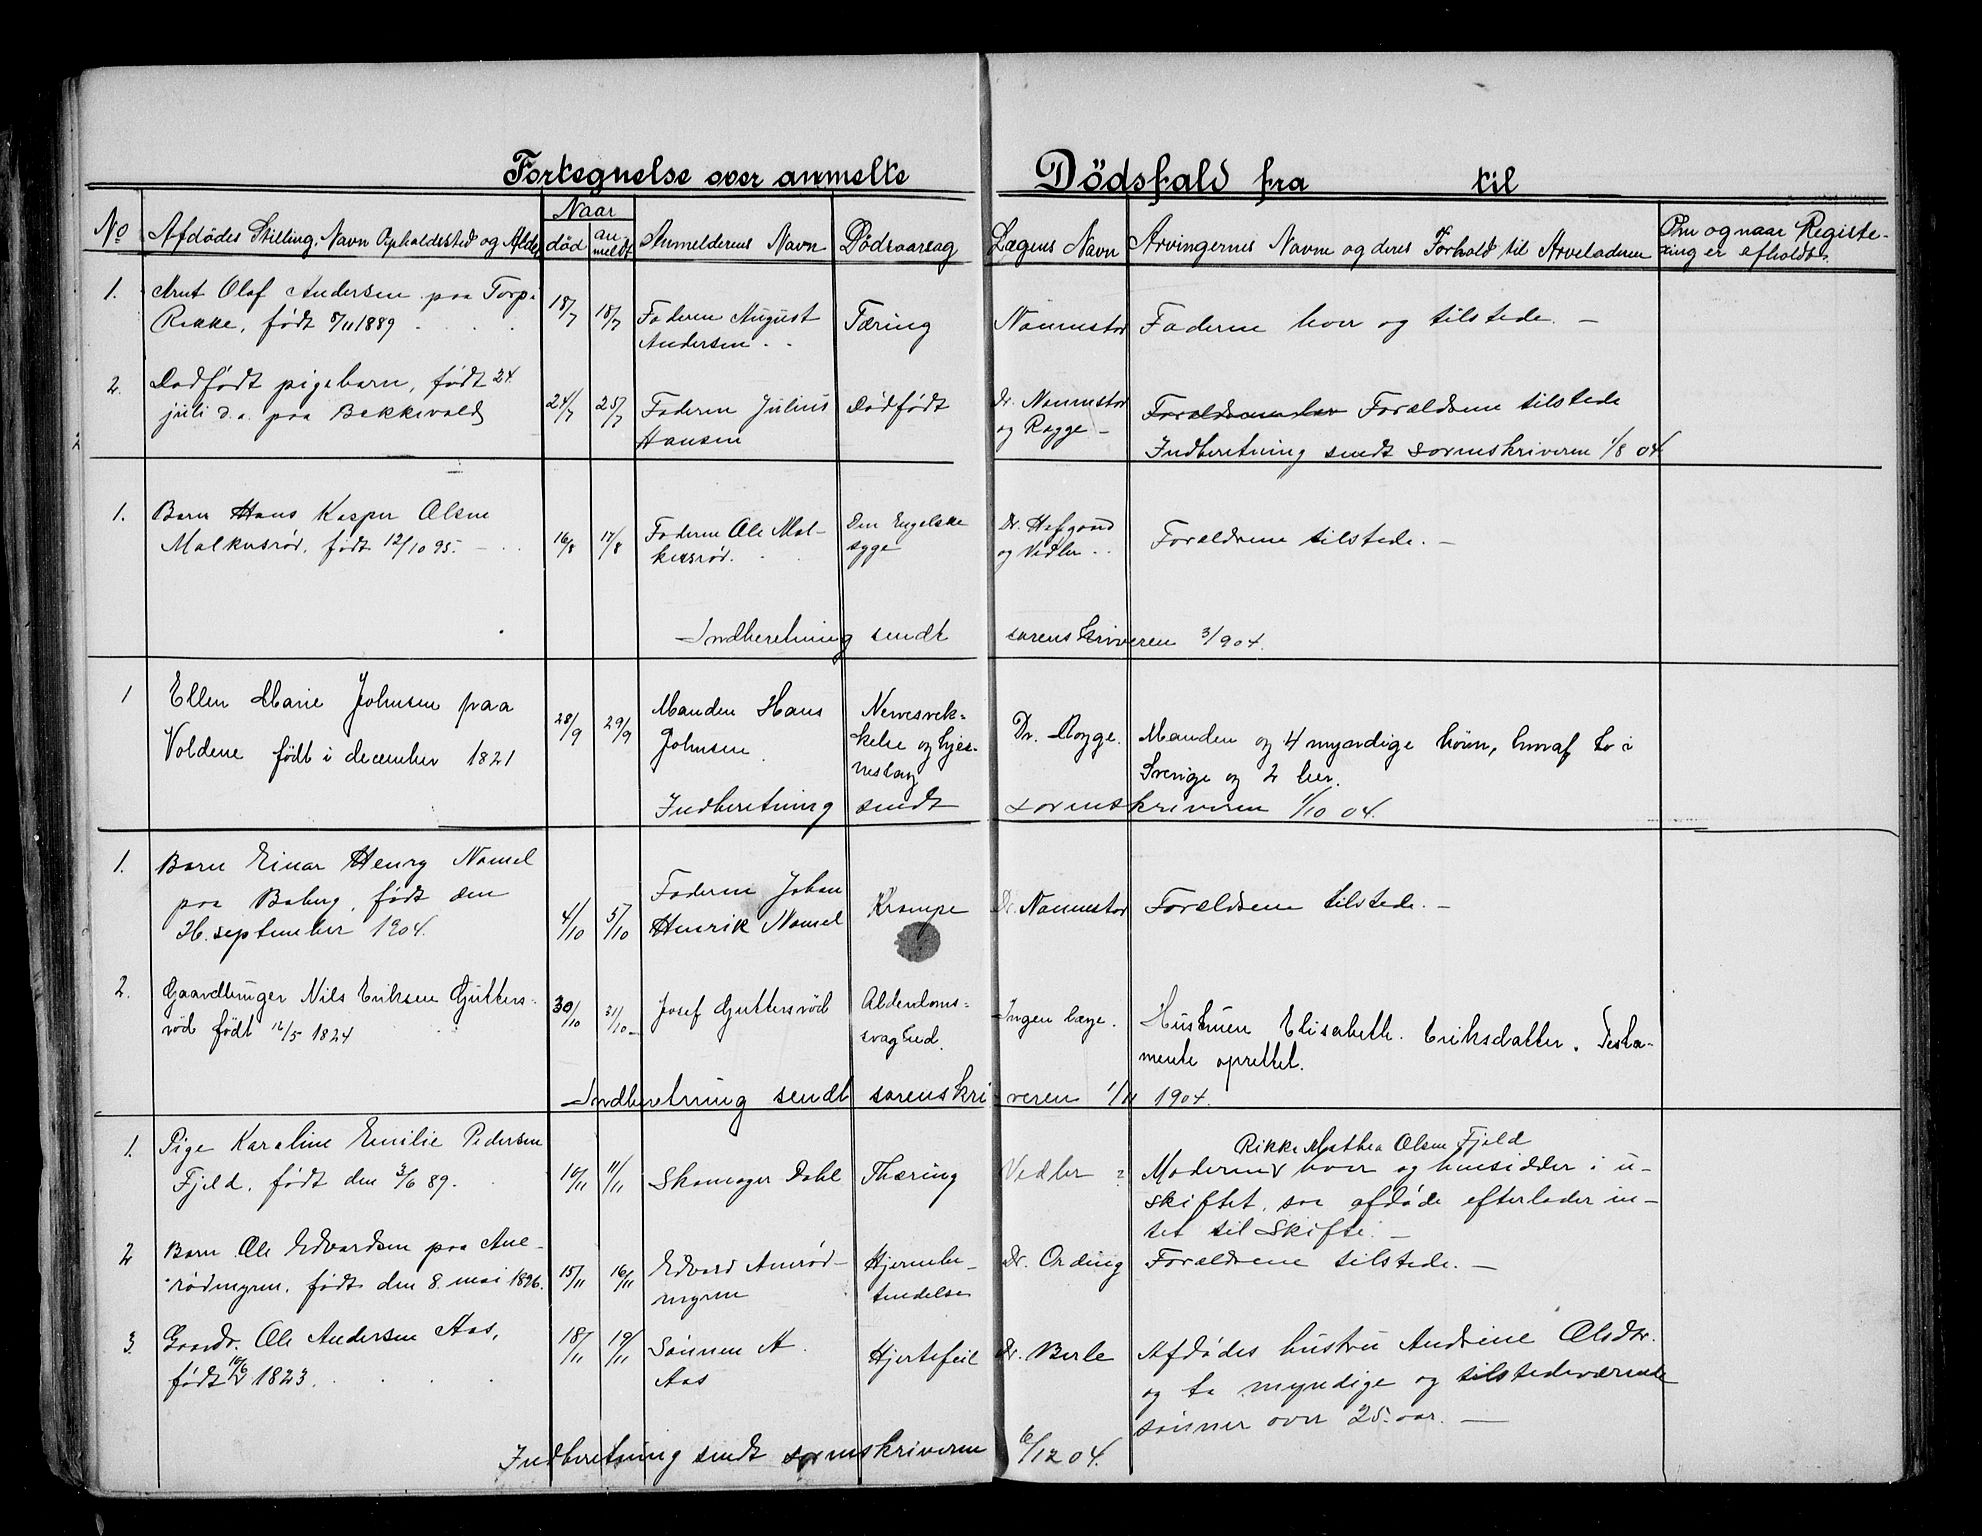 Fortegnelse over anmelte Dödsfald fra til
No Afdödes Stilling, Navn Opholdssted og Alder Naar död anmeldt Anmelderens Navn Dödsaarsag Lægens Navn Arvingernes Navne og deres Forhold til Arveladeren Om og naar Registering er afholdt
1. Olaf Andersen paa Torp.
Rekke, født 8/11 1889
18/7 18/7
Faderen August
Andersen
Tæring
Nannestad
Faderne her og tilstede. —
2. Dødfødt pigebarn, født 24
juli d.a. paa Bekkevold
24/7 25/7
Faderen Julius
Hansen
Dødfødt
Dr. Nannestad
og Rogge —
Forældrene tilstede
Indberetning sendt sorenskriveren 1/8 04.
1. Barn Hans Kasper Olsen
Molkersrød, født 12/10 95. —
16/8 17/8
Faderen Ole Mol-
kersrød.
Den Engelske
syge
Dr. Hofgaard
og Vedler
Forældrene tilstede. —
Indberetning sendt sorenskriveren 3/9 04.
1 Ellen Marie Johnsen paa
Voldene født i december 1821
28/9 29/9
Manden Hans
Johnsen
Nervesvek-
kelse og hjer-
neslag
Dr. Rogge.
Manden og 4 myndige børn, hvoraf to i
Sverige og 2 her.
Indberetning sendt sorenskriveren 1/10 04.
1. Barn Einar Henry Namel
paa Boberg, født den
26. september 1904.
4/10 5/10
Faderen Johan
Henrik Namel
Krampe
Dr. Nannestad
Forældrene tilstede. —
2. Gaardbruger Nils Eriksen Gutters-
rød født 12/5 1824
30/10 31/10
Josef Guttersrød
Alderdoms-
svaghed.
Ingen læge.
Hustruen Elisabeth. Eriksdatter. Testa-
mente oprettet.
Indberetning sendt sorenskriveren 1/11 1904.
1. Pige Karoline Emilie Pedersen
Fjeld, født den 3/6 89.
10/11 11/11
Skomager Dahl
Thæring
Vedler
Rikke Mathea Olsen Fjeld
Moderen her og hensidder i u-
skiftet, saa afdøde efterlader in-
tet til Skifte. —
2 Barn Ole Edvardsen paa Ane-
rødmyren, født den 8. mai 1896.
15/11 16/11
Edvard Anerød-
myren
Hjernebe-
tendelse
Dr. Ording
Forældrene tilstede. —
3. Gaardb. Ole Andersen Aas,
født 10/6 1823.
18/11 19/11
Sønnen A.
Aas
Hjertefeil
Dr. Berle
Afdødes hustru Andrine Olsdtr.
og to myndige og tilstedeværende
sønner over 25 aar. —
Indberetning sendt sorenskriveren 6/12 04.